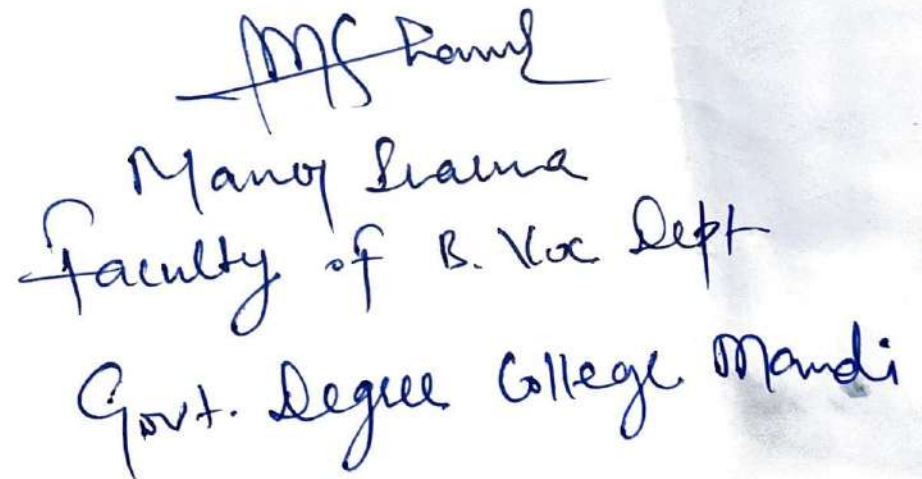 MSharma
Manoj Sharma
Faculty of B. Voc Dept
Govt. Degree College Mandi